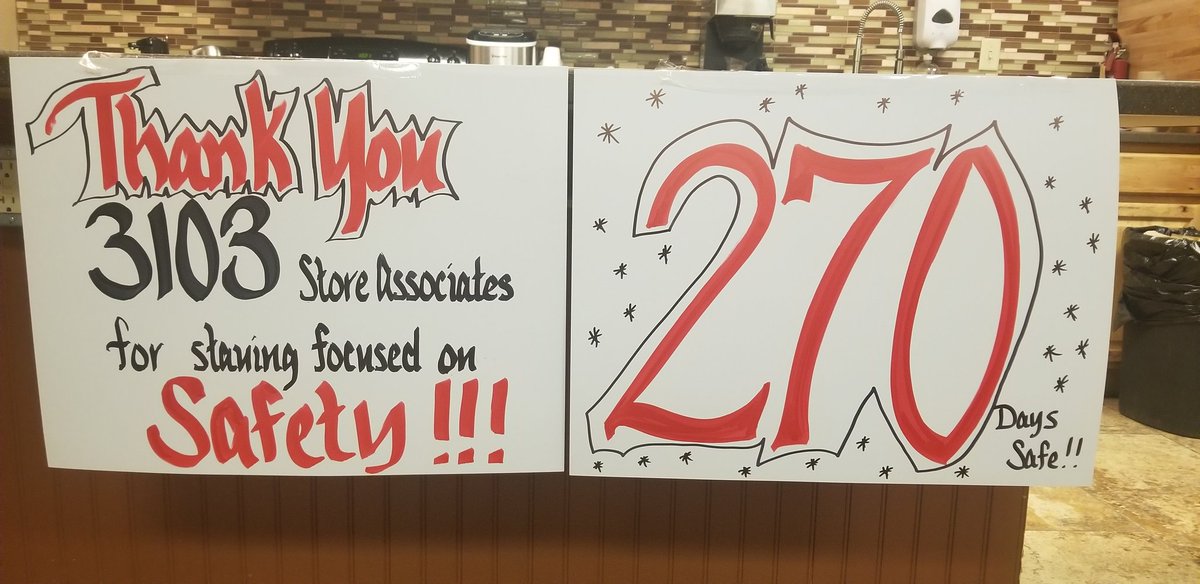 Thank You
3103 Store Associates
for staying focused on
Safety !!!
270
Days
Safe!!